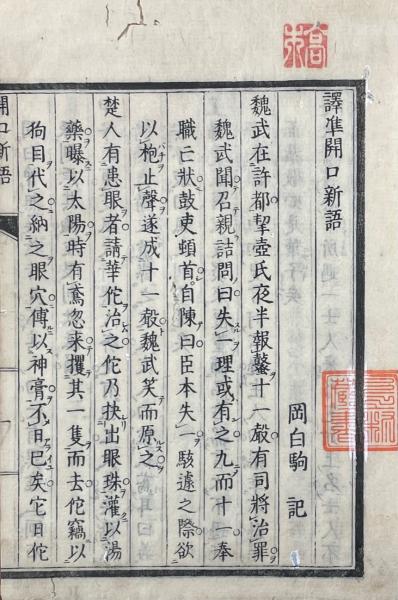 譯準開口新語
岡白駒 記
魏武在許都挈壺氏夜半報鼜十一聲有司將治罪
魏武聞召親詰問曰失一理或有之九而十一奉
職亡狀鼓吏頓首自陳曰臣本失一駭遽之際欲
以枹止聲遂成十一聲魏武笑而原之
楚人有患眼者請華佗治之佗乃抉出眼珠灌以湯
藥曝以太陽時有鳶忽来攫其一隻而去佗竊以
狗目代之納之眼穴傅以神膏不日已矣它日佗
開口新語